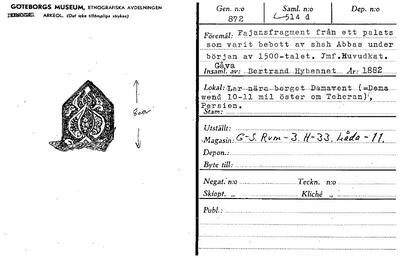 GÖTEBORGS MUSEUM, ETNOGRAFISKA AVDELNINGEN
ARKEOL. (Det icke tillämpliga strykes)
8cm
Gen. n:o Saml. n:o Dep. n:o
872 514 d
Föremål: Fajansfragment från ett palats
som varit bebott av shah Abbas under
början av 1500-talet. Jmf.Huvudkat.
Gåva
Insaml. av: Bertrand Hybennet År: 1882
Lokal: Lar nära berget Damavent (=Dema
wend 10-11 mil öster om Teheran),
Persien.
Stam:
Utställt:
Magasin: G-S. Rum-3. H-33. Låda-11.
Depon.:
Byte till:
Negat. n:o Teckn. n:o
Skiopt. „ Kliché „
Publ.: